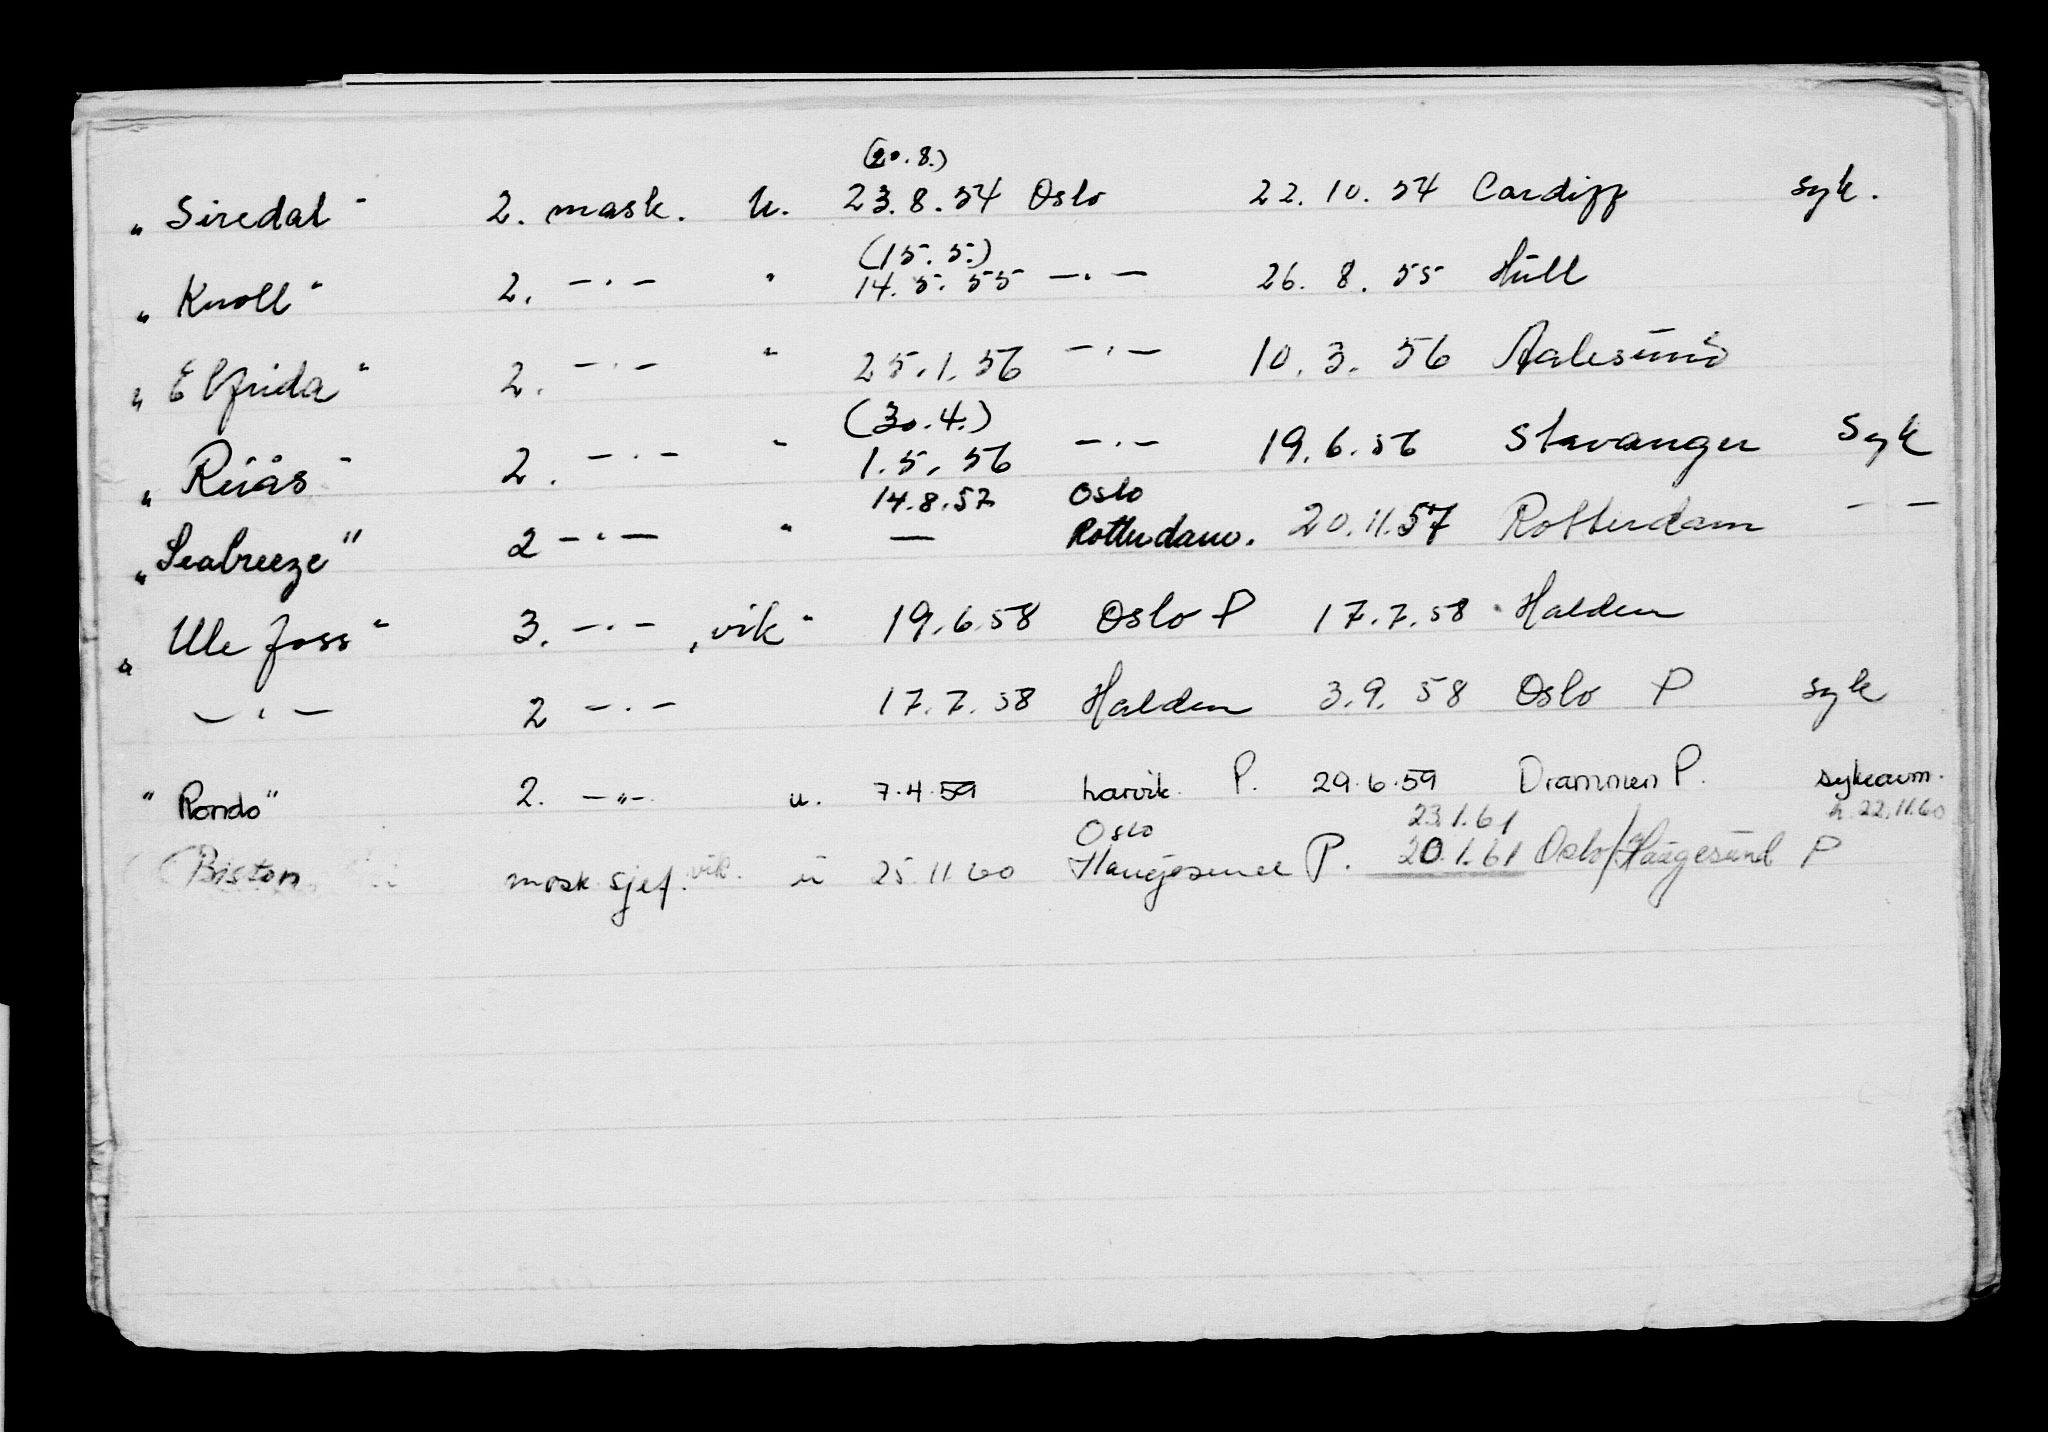 (20.8.)
"Siredal" 2. mask. u. 23.8.54 Oslo 22.10.54 Cardiff syk.
(15.5.)
"Knoll" 2. —·— " 14.5.55 —·— 26.8.55 Hull
"Elfrida" 2. —·— " 25.1.56 —·— 10.3.56 Aalesund
(30.4.)
"Ruås" 2. —·— " 1.5.56 —·— 19.6.56 Stavanger Syk
14.8.57 Oslo
"Seabreeze" 2 —·— " — Rotterdam. 20.11.57 Rotterdam — —
"Ulefoss" 3. —·— , vik " 19.6.58 Oslo P 17.7.58 Halden
—·— 2 —·— 17.7.58 Halden 3.9.58 Oslo P syk
"Rondo" 2. —"— u. 7.4.59 Larvik P. 29.6.59 Drammen P. sykeavm.
Oslo 23.1.61 h. 22.11.60
Biston mask sjef. vik. u 25.11.60 Haugesund P. 20.1.61 Oslo/Haugesund P